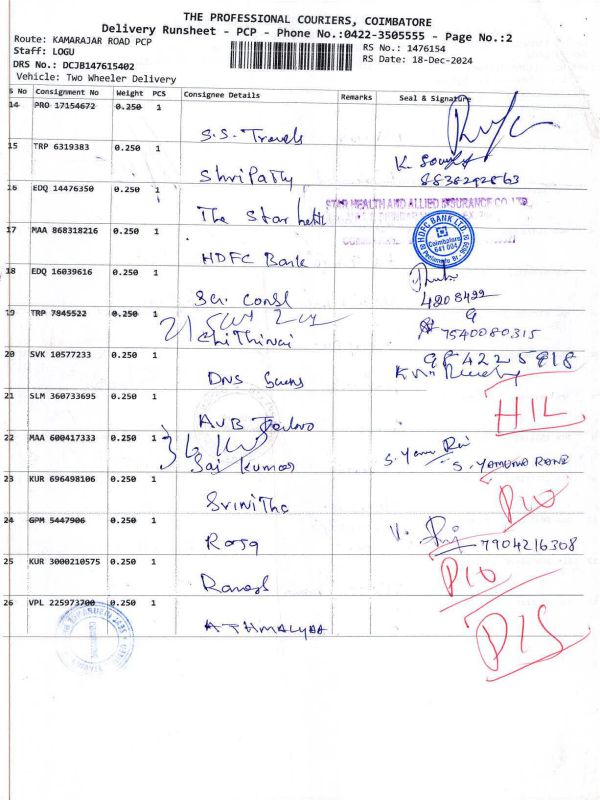 THE PROFESSIONAL COURIERS, COIMBATORE
Delivery Runsheet - PCP - Phone No.:0422-3505555 - Page No.:2
Route: KAMARAJAR ROAD PCP
RS No.: 1476154
Staff: LOGU
RS Date: 18-Dec-2024
DRS No.: DCJB147615402
Vehicle: Two Wheeler Delivery
S No Consignment No Weight PCS Consignee Details Remarks Seal & Signature
14 PRO 17154672 0.250 1
S.S. Travels
15 TRP 6319383 0.250 1
K.
Shri Patty
8838292863
16 EDQ 14476350 0.250 1
STAR HEALTH AND ALLIED INSURANCE CO. LTD
The Star
17 MAA 868318216 0.250 1
HDFC BANK LTD.
Coimbatore
641 004
HDFC Bank
18 EDQ 16039616 0.250 1
Sri Consl
4208422
19 TRP 7845522 0.250 1
Chithirai
7540080315
20 SVK 10577233 0.250 1
984225918
DNS
21 SLM 360733695 0.250 1
HIL
AVB
22 MAA 600417333 0.250 1
Sai Kumar
S. Yamu Rani
S. YAMUNA RANI
23 KUR 696498106 0.250 1
Srinitha
P10
24 GPM 5447906 0.250 1
Roja
V.
7904216308
25 KUR 3000210575 0.250 1
P10
Ramesh
26 VPL 225973700 0.250 1
ATHMALYAA
P15